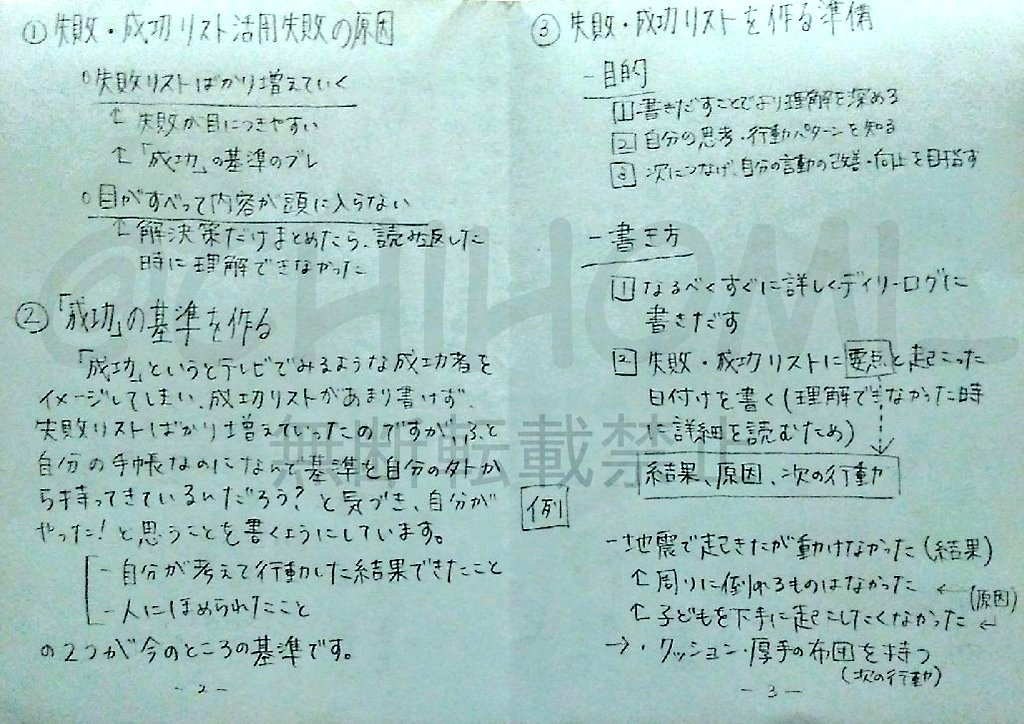 ① 失敗・成功リスト活用失敗の原因
○失敗リストばかり増えていく
↑ 失敗が目につきやすい
↑ 「成功」の基準のブレ
○目がすべって内容が頭に入らない
↑ 解決策だけまとめたら、読み返した
時に理解できなかった
② 「成功」の基準を作る
「成功」というとテレビでみるような成功者を
イメージしてしまい、成功リストがあまり書けず、
失敗リストばかり増えていったのですが、ふと
自分の手帳なのになんで基準を自分の外か
ら持ってきているんだろう?と気づき、自分が
やった!と思うことを書くようにしています。
- 自分が考えて行動した結果できたこと
- 人にほめられたこと
の2つが今のところの基準です。
- 2 -
③ 失敗・成功リストを作る準備
- 目的
1 書きだすことでより理解を深める
2 自分の思考・行動パターンを知る
3 次につなげ、自分の言動の改善・向上を目指す
- 書き方
1 なるべくすぐに詳しくデイリーログに
書きだす
2 失敗・成功リストに要点と起こった
日付けを書く(理解できなかった時
に詳細を読むため)
結果、原因、次の行動
例
- 地震で起きたが動けなかった(結果)
↑ 周りに倒れるものはなかった ←
(原因)
↑ 子どもを下手に起こしたくなかった ←
→ ・クッション・厚手の布団を持つ
(次の行動)
- 3 -
無断転載禁止